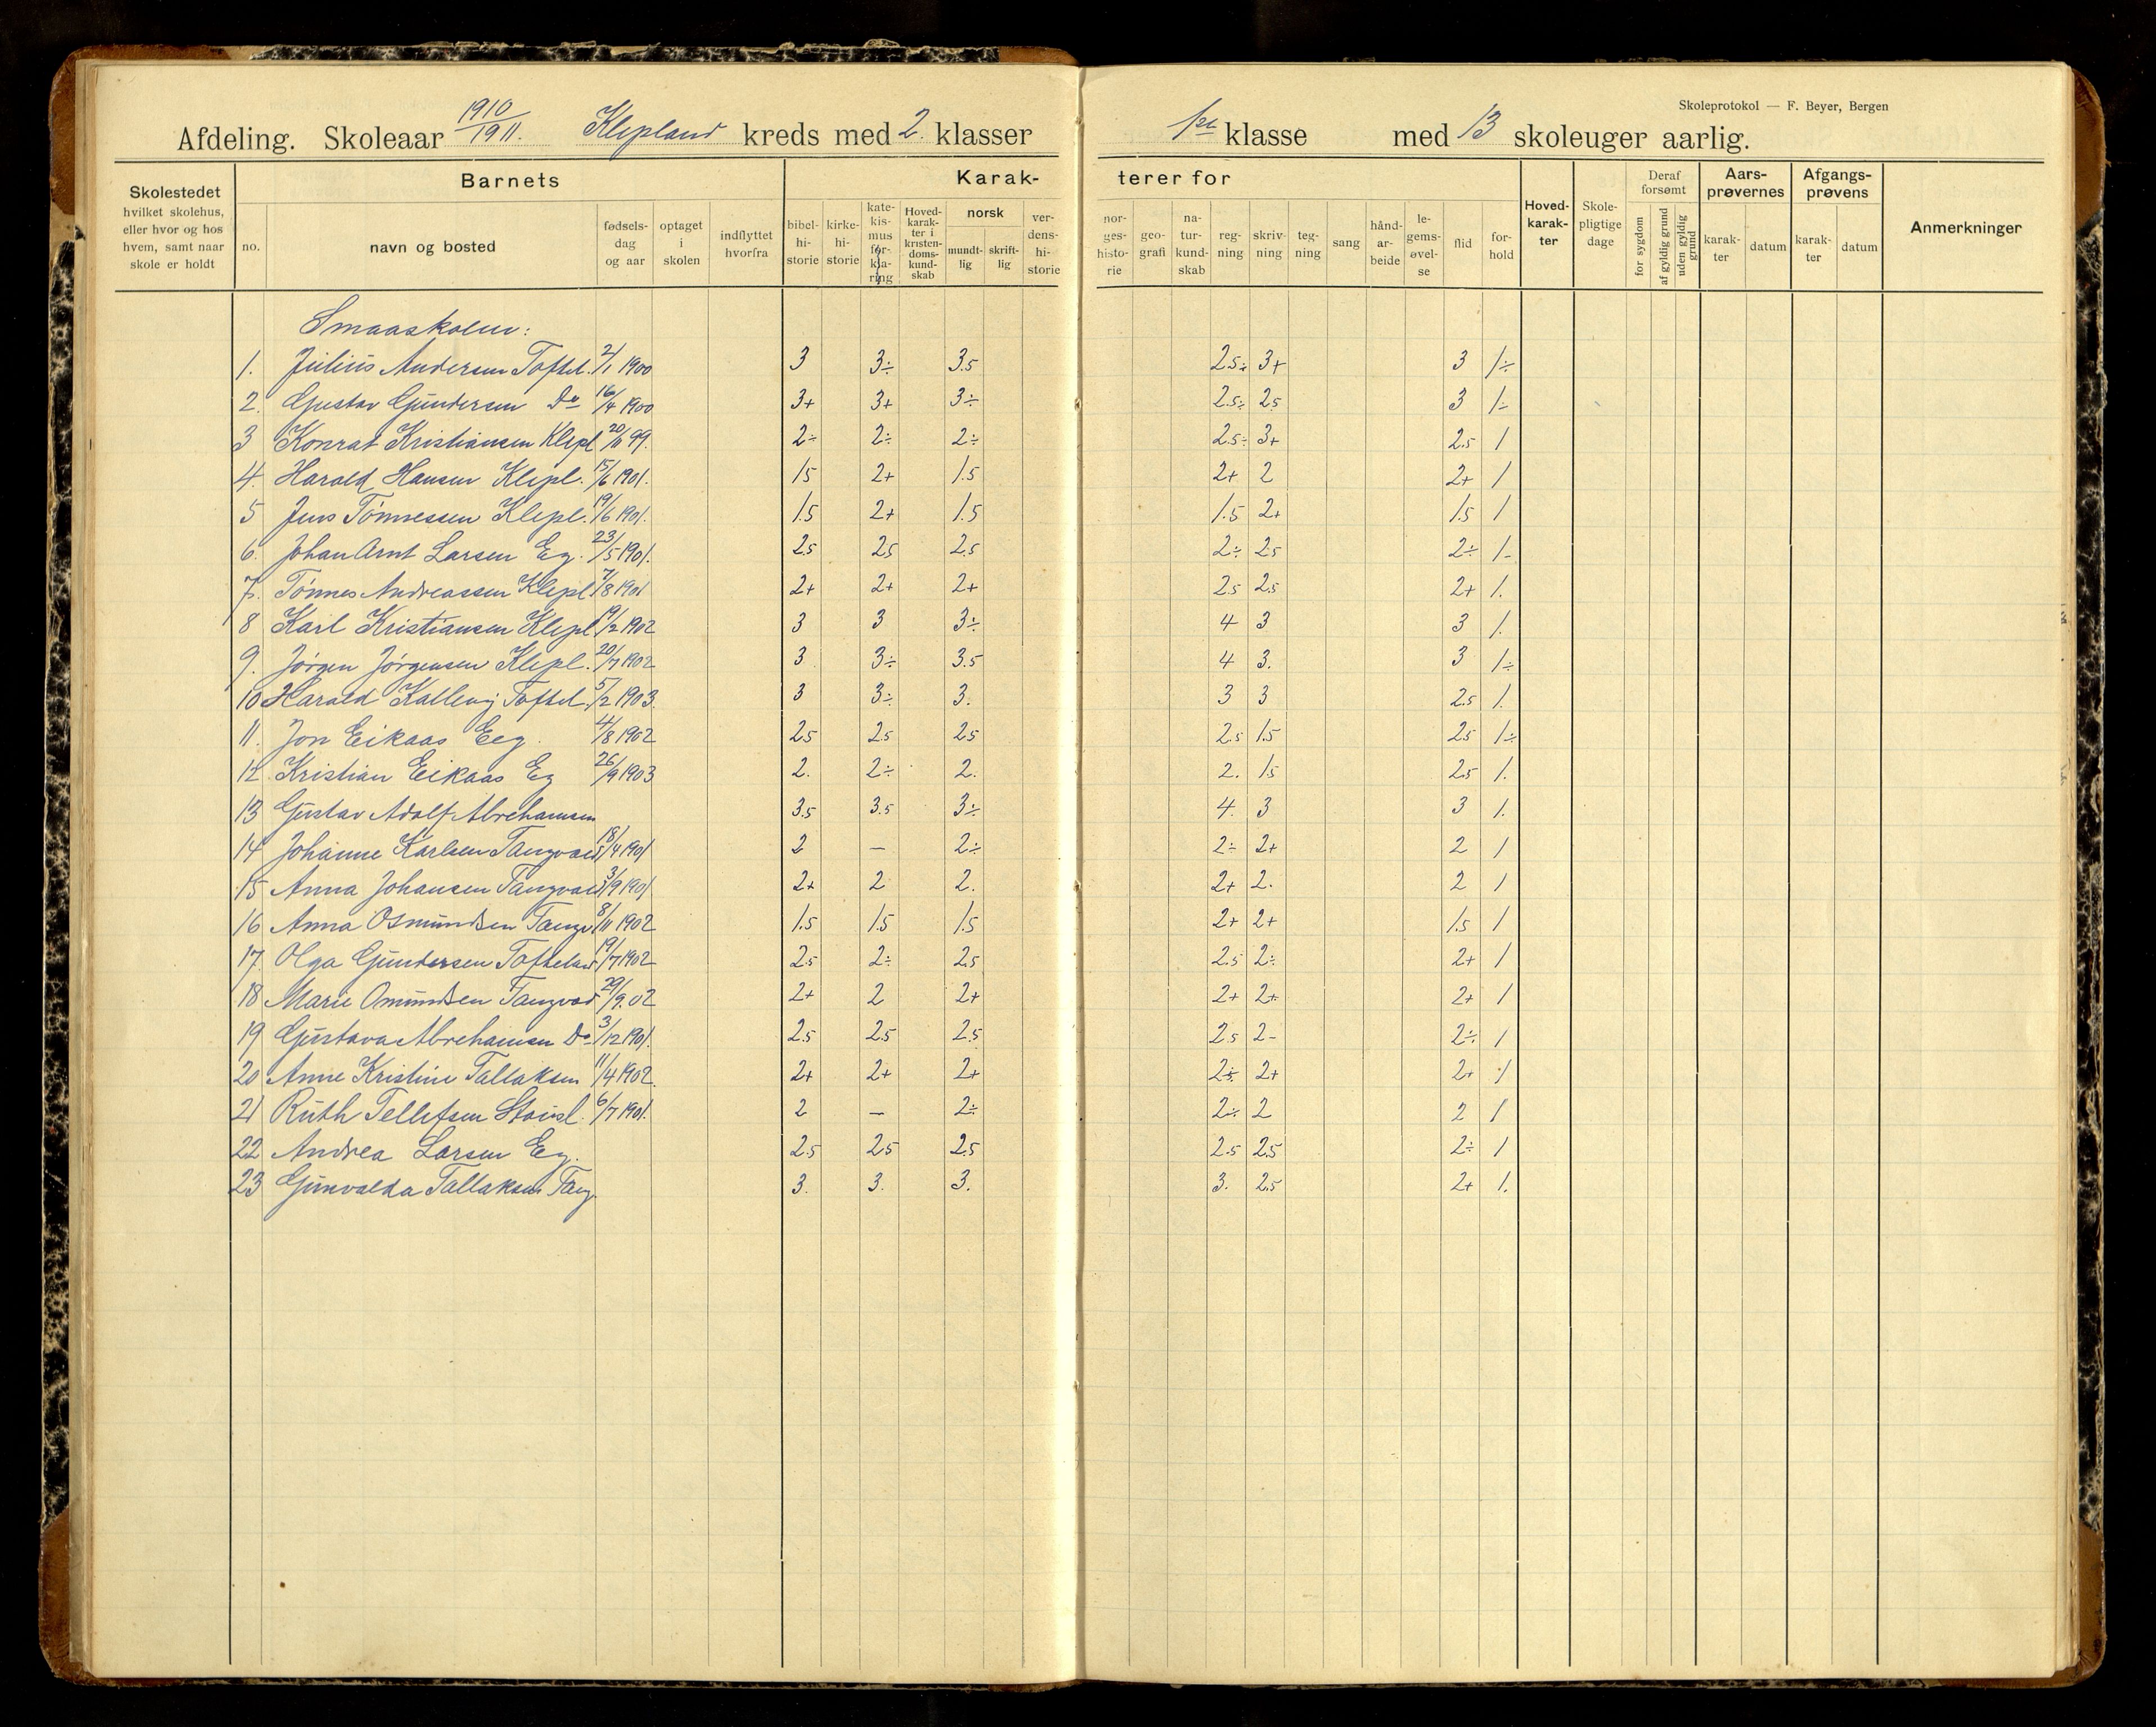 Skoleprotokol — F. Beyer, Bergen
Afdeling. Skoleaar 1910/1911. Klepland kreds med 2. klasser 1ste klasse med 13 skoleuger aarlig.
Skolestedet hvilket skolehus, eller hvor og hos hvem, samt naar skole er holdt
Barnets
no. navn og bosted fødsels-dag og aar optaget i skolen indflyttet hvorfra
Karak-terer for
bibel-hi-storie kirke-hi-storie kate-kis-mus for-kla-ring Hoved-karak-ter i kristen-doms-kund-skab norsk mundt-lig skrift-lig ver-dens-hi-storie
nor-ges-histo-rie geo-grafi na-tur-kund-skab reg-ning skriv-ning teg-ning sang hånd-ar-beide le-gems-øvel-se flid for-hold
Hoved-karak-ter Skole-pligtige dage Deraf forsømt for sygdom af gyldig grund uden gyldig grund
Aars-prøvernes karak-ter datum Afgangs-prøvens karak-ter datum Anmerkninger
Smaaskolen:
1. Julius Andersen Toftel. 2/1 1900 3 3÷ 3.5 2.5÷ 3+ 3 1÷
2. Gustav Gundersen Do 16/4 1900 3+ 3+ 3÷ 2.5÷ 2.5 3 1÷
3 Konrat Kristiansen Klepl 20/11 99. 2÷ 2÷ 2÷ 2.5÷ 3+ 2.5 1
4. Harald Hansen Klepl. 15/6 1901. 1.5 2+ 1.5 2+ 2 2+ 1
5 Jens Tönnessen Klepl. 19/6 1901. 1.5 2+ 1.5 1.5 2+ 1.5 1
6. Johan Arnt Larsen Eg. 23/5 1901. 2.5 2.5 2.5 2÷ 2.5 2÷ 1-
7. Tönnes Andreassen Klepl 7/8 1901 2+ 2+ 2+ 2.5 2.5 2+ 1.
8 Karl Kristiansen Klepl 19/2 1902 3 3 3÷ 4 3 3 1.
9. Jörgen Jörgensen Klepl. 20/7 1902 3 3÷ 3.5 4 3. 3 1÷
10 Harald Kallevig Toftel. 5/2 1903. 3 3÷ 3. 3 3 2.5 1.
11. Jon Eikaas Eeg. 4/8 1902 2.5 2.5 2.5 2.5 1.5 2.5 1÷
12. Kristian Eikaas Eg 26/9 1903 2. 2÷ 2. 2. 1.5 2.5 1.
13 Gustav Adolf Abrehamsen 3.5 3.5 3÷ 4. 3 3 1.
14 Johanne Karlsen Tangvald 18/4 1901 2 — 2÷ 2÷ 2+ 2 1
15 Anna Johansen Tangvald 3/9 1901 2+ 2 2. 2+ 2. 2 1
16 Anna Osmundsen Tangv 8/11 1902 1.5 1.5 1.5 2+ 2+ 1.5 1
17 Olga Gundersen Tofteland 19/7 1902 2.5 2÷ 2.5 2.5 2÷ 2+ 1
18 Marie Omundsen Tangvad 29/9.02 2+ 2 2+ 2+ 2+ 2+ 1
19 Gustava Abrehamsen Do 3/12 1901. 2.5 2.5 2.5 2.5 2- 2÷ 1
20 Anne Kristine Tallaksen 11/4 1902. 2+ 2+ 2+ 2÷ 2+ 2+ 1
21 Ruth Tellefsen 6/7 1901. 2 — 2÷ 2÷ 2 2 1
22 Andrea Larsen Eg. 2.5 2.5 2.5 2.5 2.5 2÷ 1
23 Gunvalda Tallaksen Tang. 3. 3. 3. 3. 2.5 2+ 1.